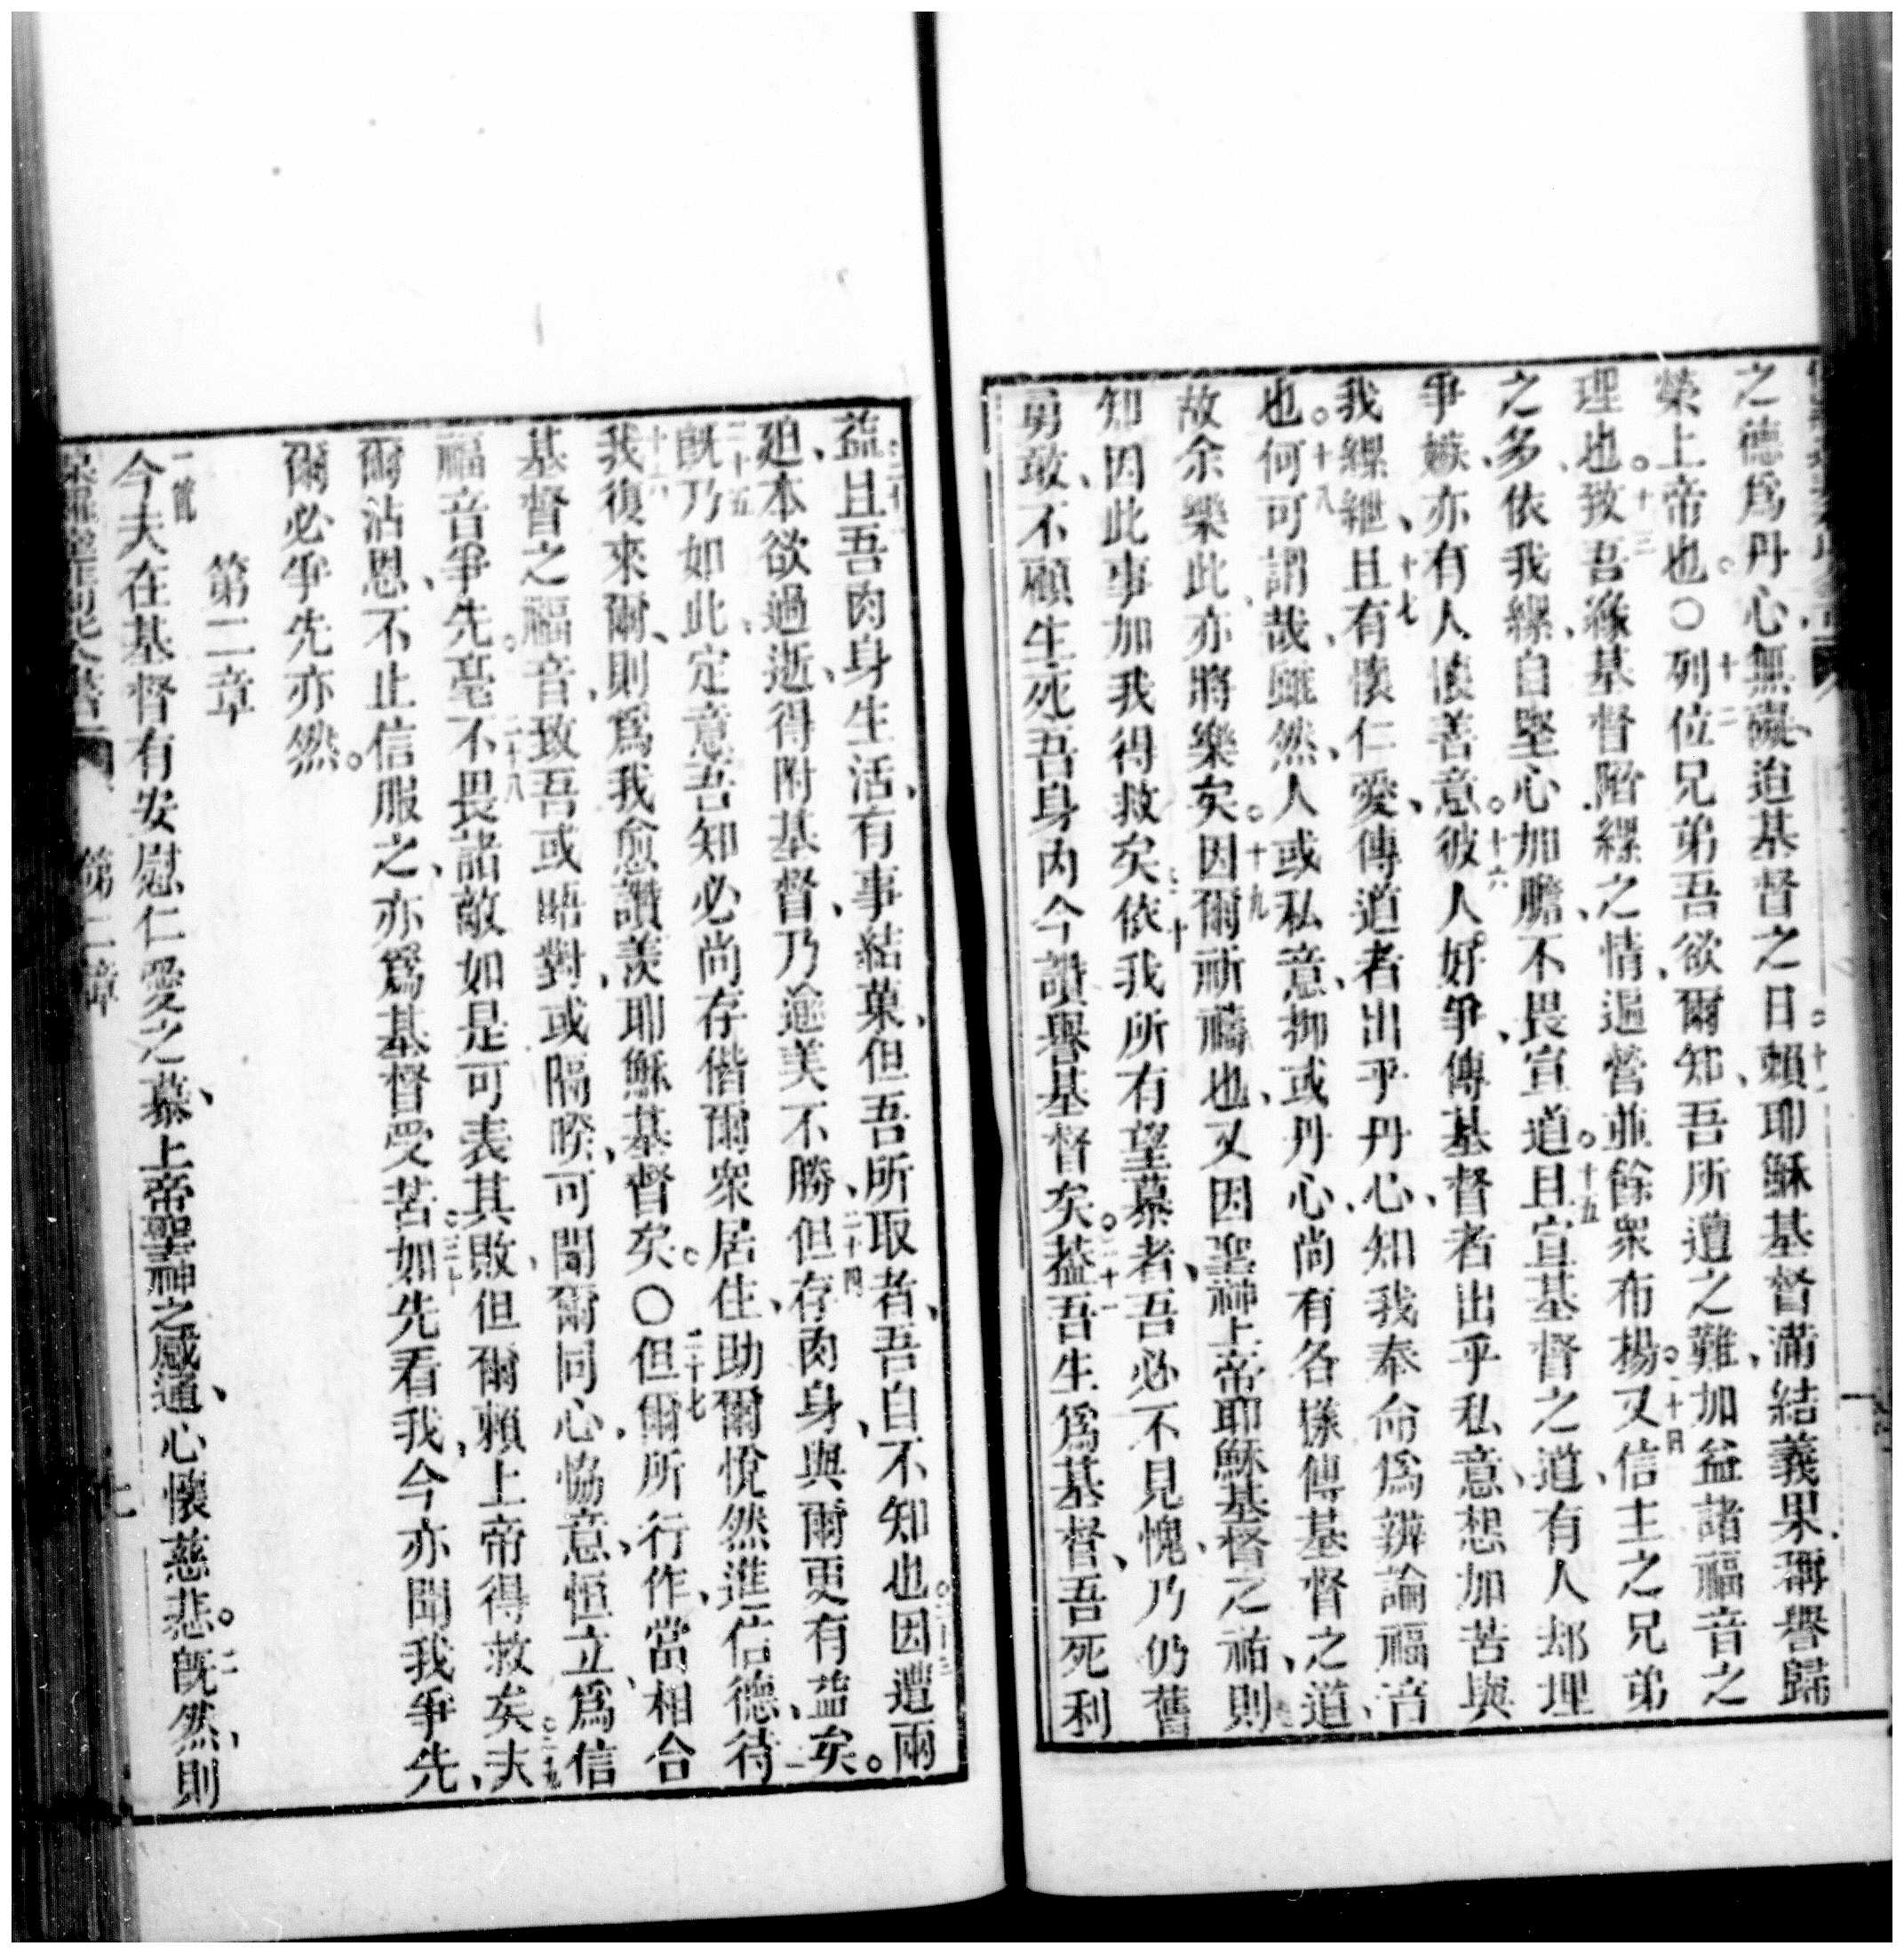 之德爲丹心、無礙、迨基督之日。十一賴耶穌基督滿結義果、稱譽歸
榮上帝也。〇十二列位兄弟吾欲爾知、吾所遭之難、加益諸福音之
理也。十三致吾緣基督膺縲之情、遍營並餘衆布楊。十四又信主之兄弟
之多、依我縲、自堅心加膽、不畏宣道。十五且宣基督之道、有人䢼埋
爭嫉、亦有人懐善意。十六彼人好爭、傳基督者出乎私意、想加苦與
我縲紲、十七且有懐仁愛、傳道者出乎丹心、知我奉命爲辨論福音
也。十八何可謂哉、雖然、人或私意、抑或丹心、尚有各樣傳基督之道、
故余樂此、亦將樂矣。十九因爾祈禱也、又因聖神上帝耶穌基督之祐、則
知因此事加我得救矣。二十依我所有望慕者、吾必不見愧、乃仍舊
勇敢、不顧生死吾身內今讚譽基督矣。二十一葢吾生爲基督、吾死利
益且吾肉身生活、有事結菓、但吾所取者、吾自不知也。二十三因遭兩
廹、本欲過逝、得附基督、乃逾美不勝、二十四但存肉身、與爾更有益矣。
二十五旣乃如此、定意吾知必尚存偕爾衆居住、助爾悅然進信德、待
二十六我復來爾、則爲我愈讚羨、耶穌基督矣。〇二十七但爾所行作、當相合
基督之福音、致吾或晤對、或隔暌、可聞爾同心、恊意、恒立、爲信
福音爭先。二十八毫不畏諸敵、如是可表其敗、但爾賴上帝得救矣。二十九夫
爾沾恩、不止信服之、亦爲基督受苦。三十如先看我、今亦聞我爭先、
爾必爭先亦然。
第二章
一節今夫在基督有安慰仁愛之慕、上帝聖神之感通、心懷慈悲。二旣然、則
第二章
七